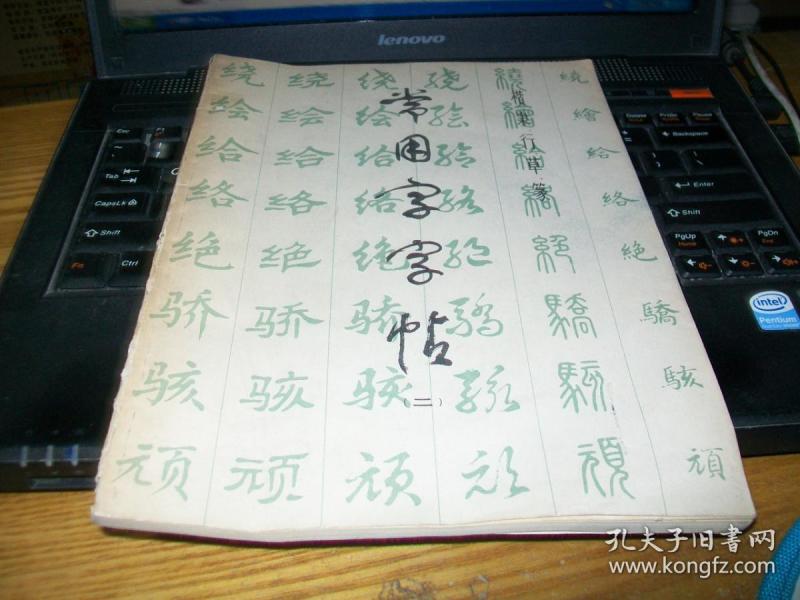 lenovo
常用字字帖
(二)
楷隶行草篆
绕 绕 绕 绕 繞 繞
绘 绘 绘 绘 繪 繪
给 给 给 给 給 給
络 络 络 络 絡 絡
绝 绝 绝 绝 絕 絕
骄 骄 骄 骄 驕 驕
骇 骇 骇 骇 駭 駭
顽 顽 顽 顽 頑 頑
Esc
Tab
CapsLk
Shift
Fn
Ctrl
Backspace
Enter
Shift
PgUp
PgDn
Home
End
intel
Pentium
孔夫子旧书网
www.kongfz.com